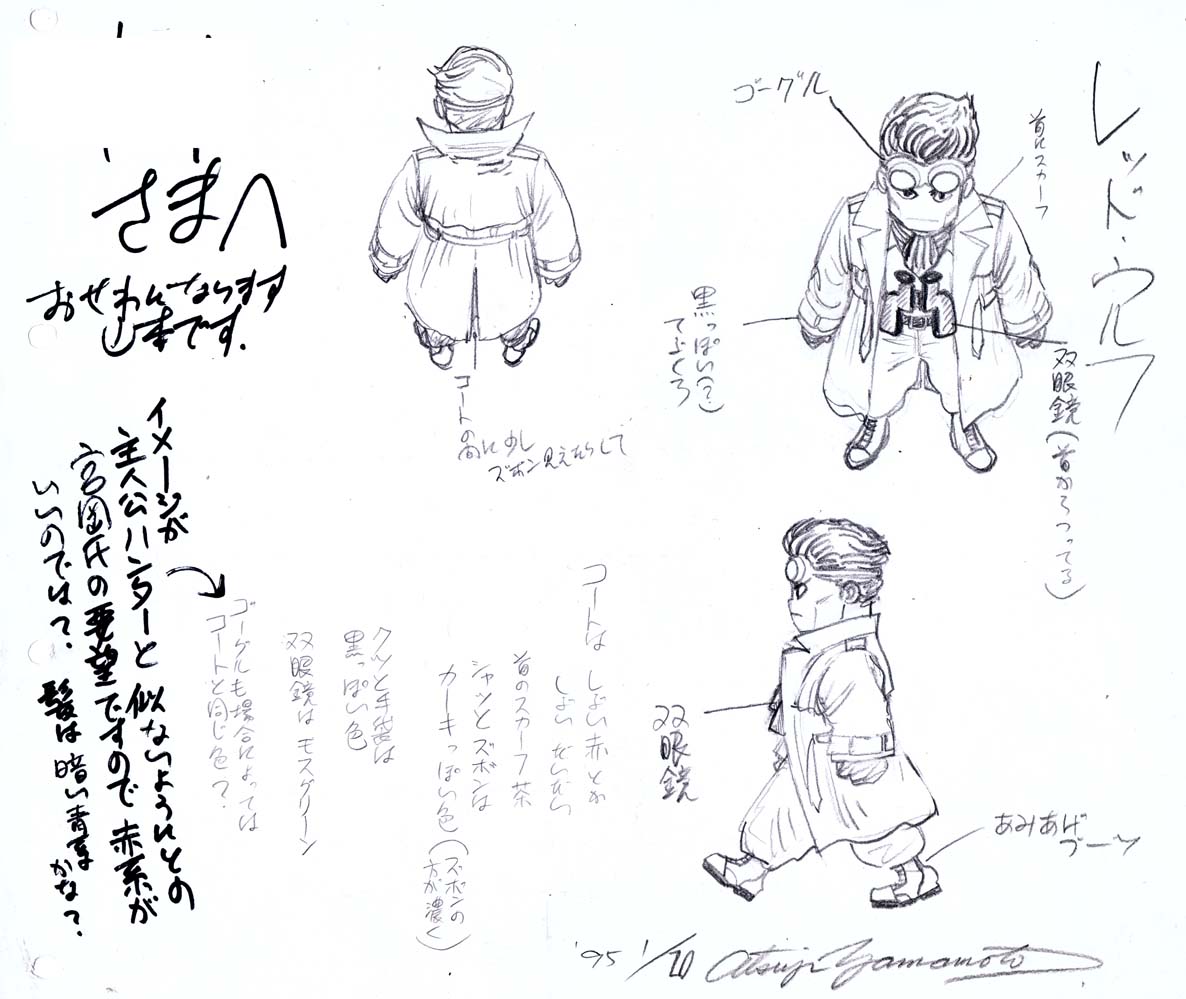 レッド・ウルフ
ゴーグル
首にスカーフ
黒っぽい(?)
てぶくろ
双眼鏡(首からつってる)
さまへ
おせわになります
山本です.
コートの
間に少し
ズボン見えたりして
イメージが
主人公ハンターと似ないようにとの
宮岡氏の要望ですので赤系が
いいのでは?髪は暗い青系
かな?
コートは しぶい赤とか
しぶい だいだい
首のスカーフ茶
シャツとズボンは
カーキっぽい色(ズボンの
方が濃く)
クツと手袋は
黒っぽい色
双眼鏡は モスグリーン
ゴーグルも場合によっては
コートと同じ色?
双眼鏡
あみあげ
ブーツ
'95 1/20 Atsuji Yamamoto